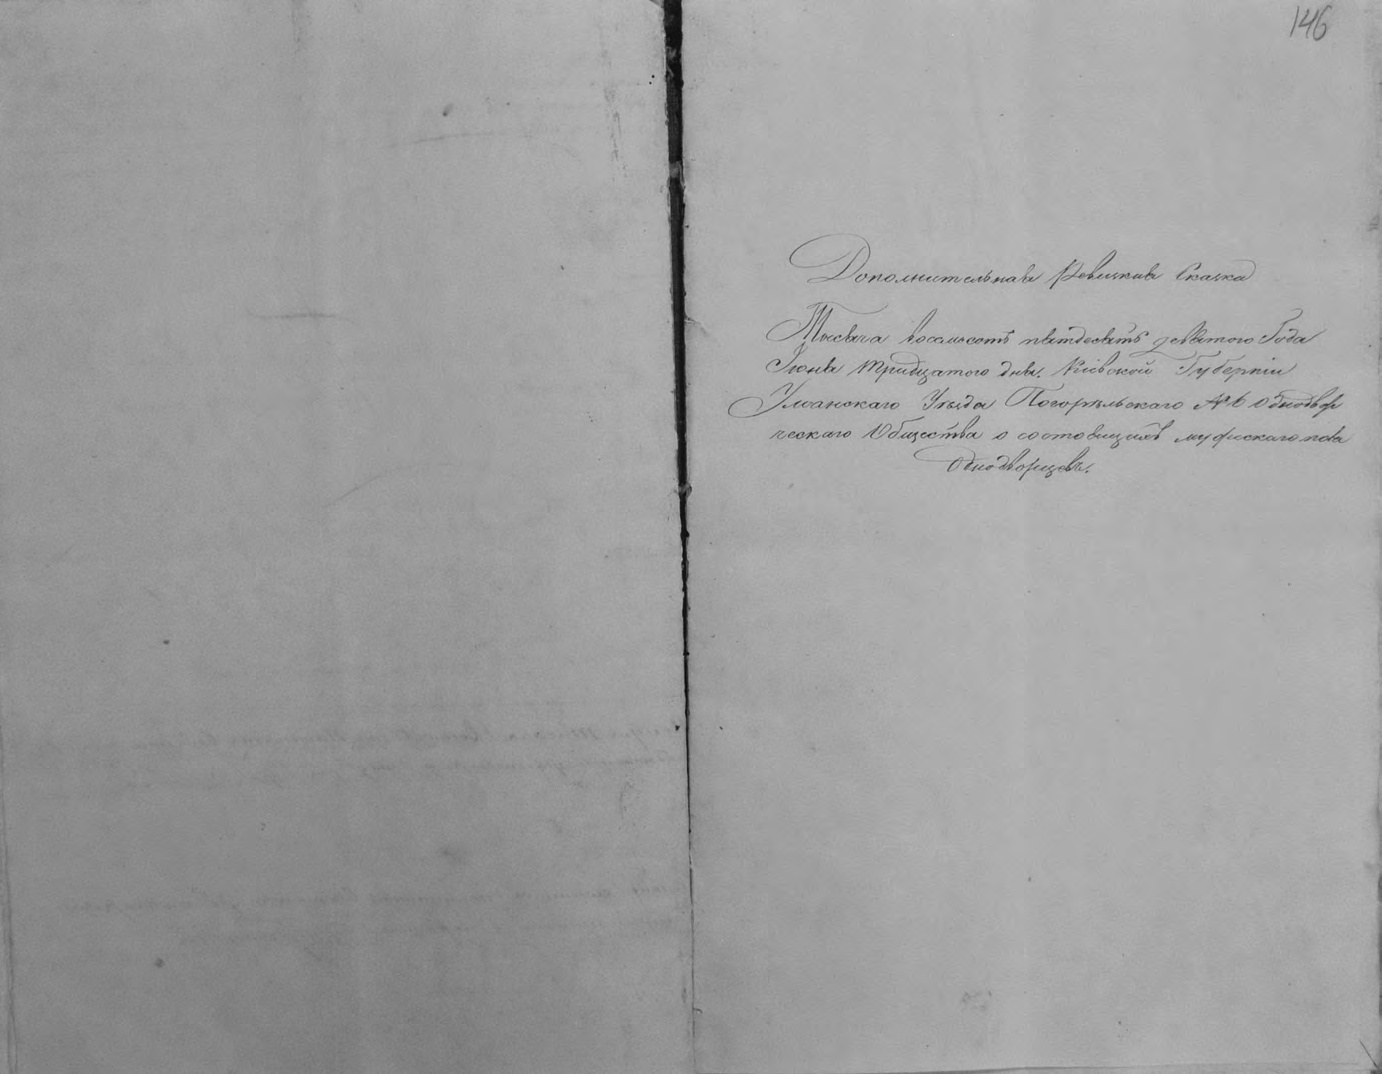 146
Дополнительная Ревизкия Сказка
Тысяча восемьсотъ пятдесятъ девятого Года
Іюня тридцатого дня. Кіевской Губерніи
Уманскаго Уѣзда Погорѣльскаго № 6 однодвор
ческаго Общества о состоящихъ мужскаго пола
Однодворцевъ.